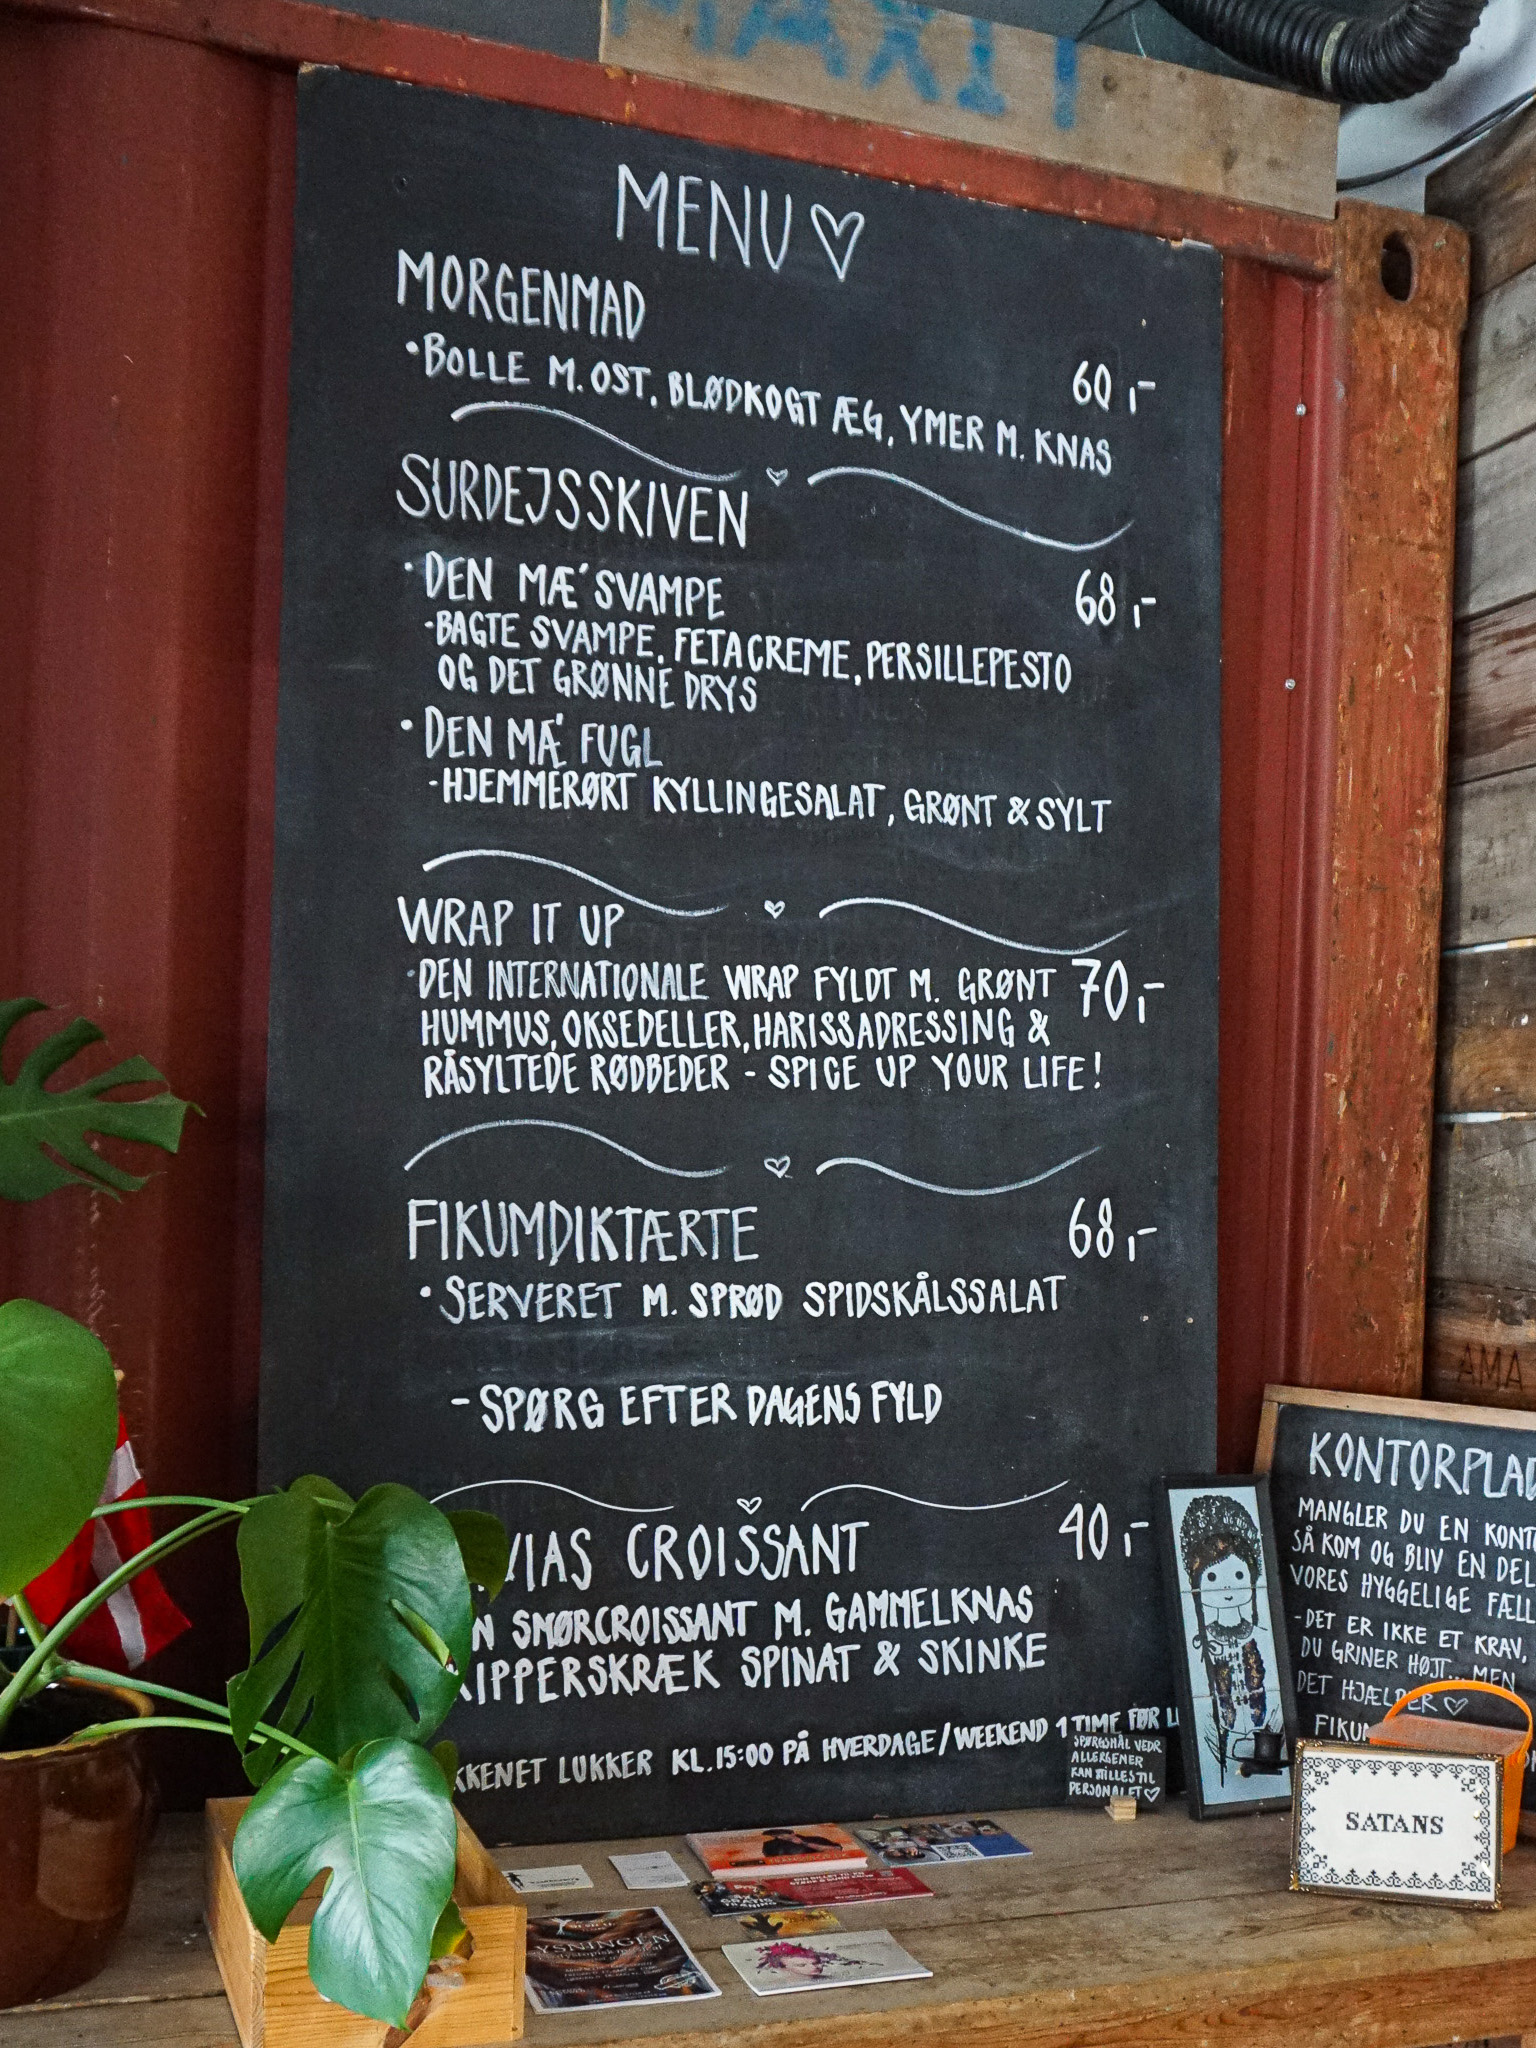 MAXIT
MENU ♡
MORGENMAD
• BOLLE M. OST, BLØDKOGT ÆG, YMER M. KNAS 60,-
SURDEJSSKIVEN
• DEN MÆ´SVAMPE 68,-
- BAGTE SVAMPE, FETACREME, PERSILLEPESTO
OG DET GRØNNE DRYS
• DEN MÆ´ FUGL
- HJEMMERØRT KYLLINGESALAT, GRØNT & SYLT
WRAP IT UP
• DEN INTERNATIONALE WRAP FYLDT M. GRØNT 70,-
HUMMUS, OKSEDELLER, HARISSADRESSING &
RÅSYLTEDE RØDBEDER - SPICE UP YOUR LIFE!
FIKUMDIKTÆRTE 68,-
• SERVERET M. SPRØD SPIDSKÅLSSALAT
- SPØRG EFTER DAGENS FYLD
VIAS CROISSANT 40,-
N SMØRCROISSANT M. GAMMELKNAS
IPPERSKRÆK SPINAT & SKINKE
KKENET LUKKER KL. 15:00 PÅ HVERDAGE/WEEKEND 1 TIME FØR L
SPØRGSMÅL VEDR
ALLERGENER
KAN STILLES TIL
PERSONALET ♡
KONTORPLAD
MANGLER DU EN KONTO
SÅ KOM OG BLIV EN DEL
VORES HYGGELIGE FÆLL
- DET ER IKKE ET KRAV,
DU GRINER HØJT... MEN
DET HJÆLPER ♡
FIKUM
SATANS
AMA
YSNINGEN